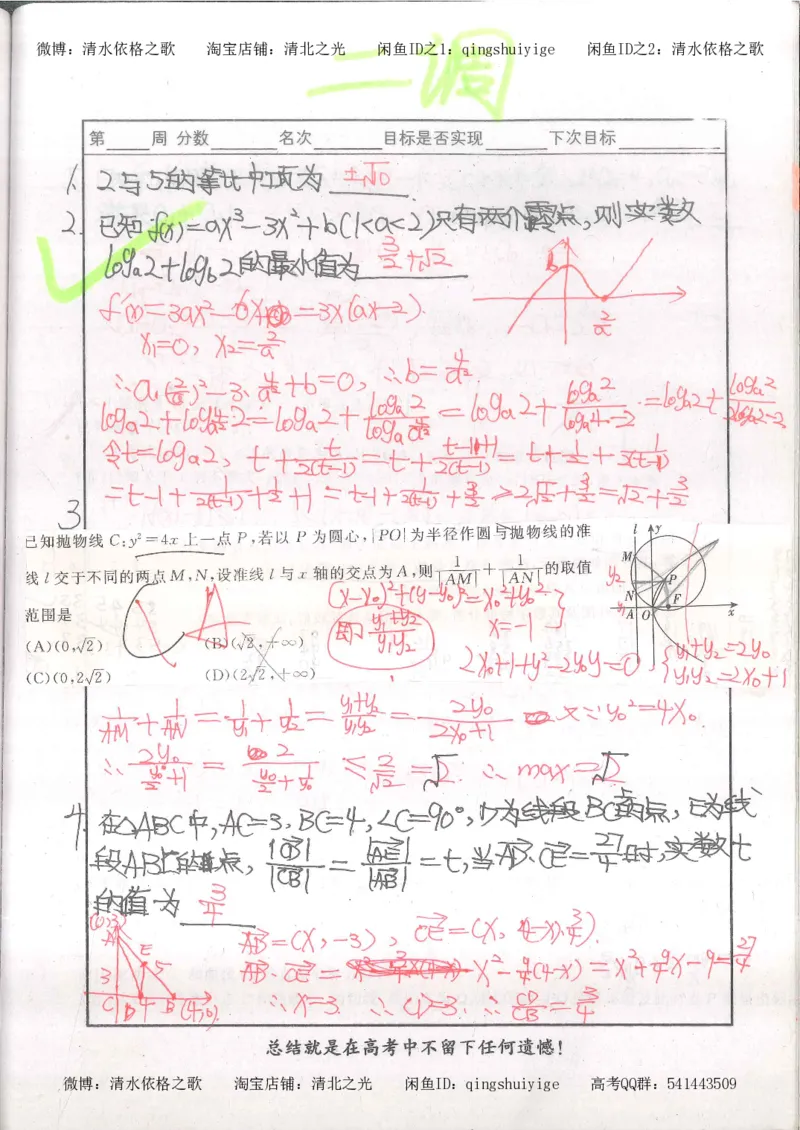 微博：清水依格之歌 淘宝店铺：清北之光 闲鱼ID之1：qingshuiyige 闲鱼ID之2：清水依格之歌
二调
第 周 分数 名次 目标是否实现 下次目标
1. 2与5的等比中项为 ±√10
2. 已知f(x)=ax³-3x²+b(1<a<2)只有两个零点,则实数
logₐ2+log_b 2的最小值为 3/2+√2
b 2/a
=3x(ax-2)
x₁=0, x₂=2/a
∴a(2/a)³-3·4/a²+b=0, ∴b=4/a²
令t=logₐ2, t+t/2(t-1)=t+(t-1+1)/2(t-1)=t+1/2+1/2(t-1)
=t-1+1/2(t-1)+1/2+1=t-1+1/2(t-1)+3/2≥2√1/2+3/2=√2+3/2
3
已知抛物线 C:y²=4x 上一点 P,若以 P 为圆心,|PO|为半径作圆与抛物线的准
线 l 交于不同的两点 M,N,设准线 l 与 x 轴的交点为 A,则 1/|AM| + 1/|AN| 的取值
范围是
(A)(0,√2) (B)(√2,+∞)
(C)(0,2√2) (D)(2√2,+∞)
l y M P N F A O x
y₂ y₁
(x-x₀)²+(y-y₀)²=x₀²+y₀²
x=-1
即 (y₁+y₂)/(y₁y₂)
2x₀+1+y²-2y₀y=0 { y₁+y₂=2y₀
y₁y₂=2x₀+1
1/AM+1/AN=1/y₁+1/y₂=(y₁+y₂)/(y₁y₂)=2y₀/(2x₀+1) 又∵y₀²=4x₀
≤2/√2=√2 ∴max=√2
4. 在△ABC中,AC=3,BC=4,∠C=90°,D为线段BC
E为线
段AB上的 点, = |AE|/|AB| =t,当AD·CE=27/4时,实数t
的值为 3/4
(0,3) A E 3 5 C D B (4,0)
AD=(x,-3), CE=(x, 3/4).
AD·CE= x²-9/4(4-x)=x²+9/4x-9=27/4
∴x=3 ∴CD=3 ∴CD/CB=3/4
总结就是在高考中不留下任何遗憾！
微博：清水依格之歌 淘宝店铺：清北之光 闲鱼ID：qingshuiyige 高考QQ群：541443509